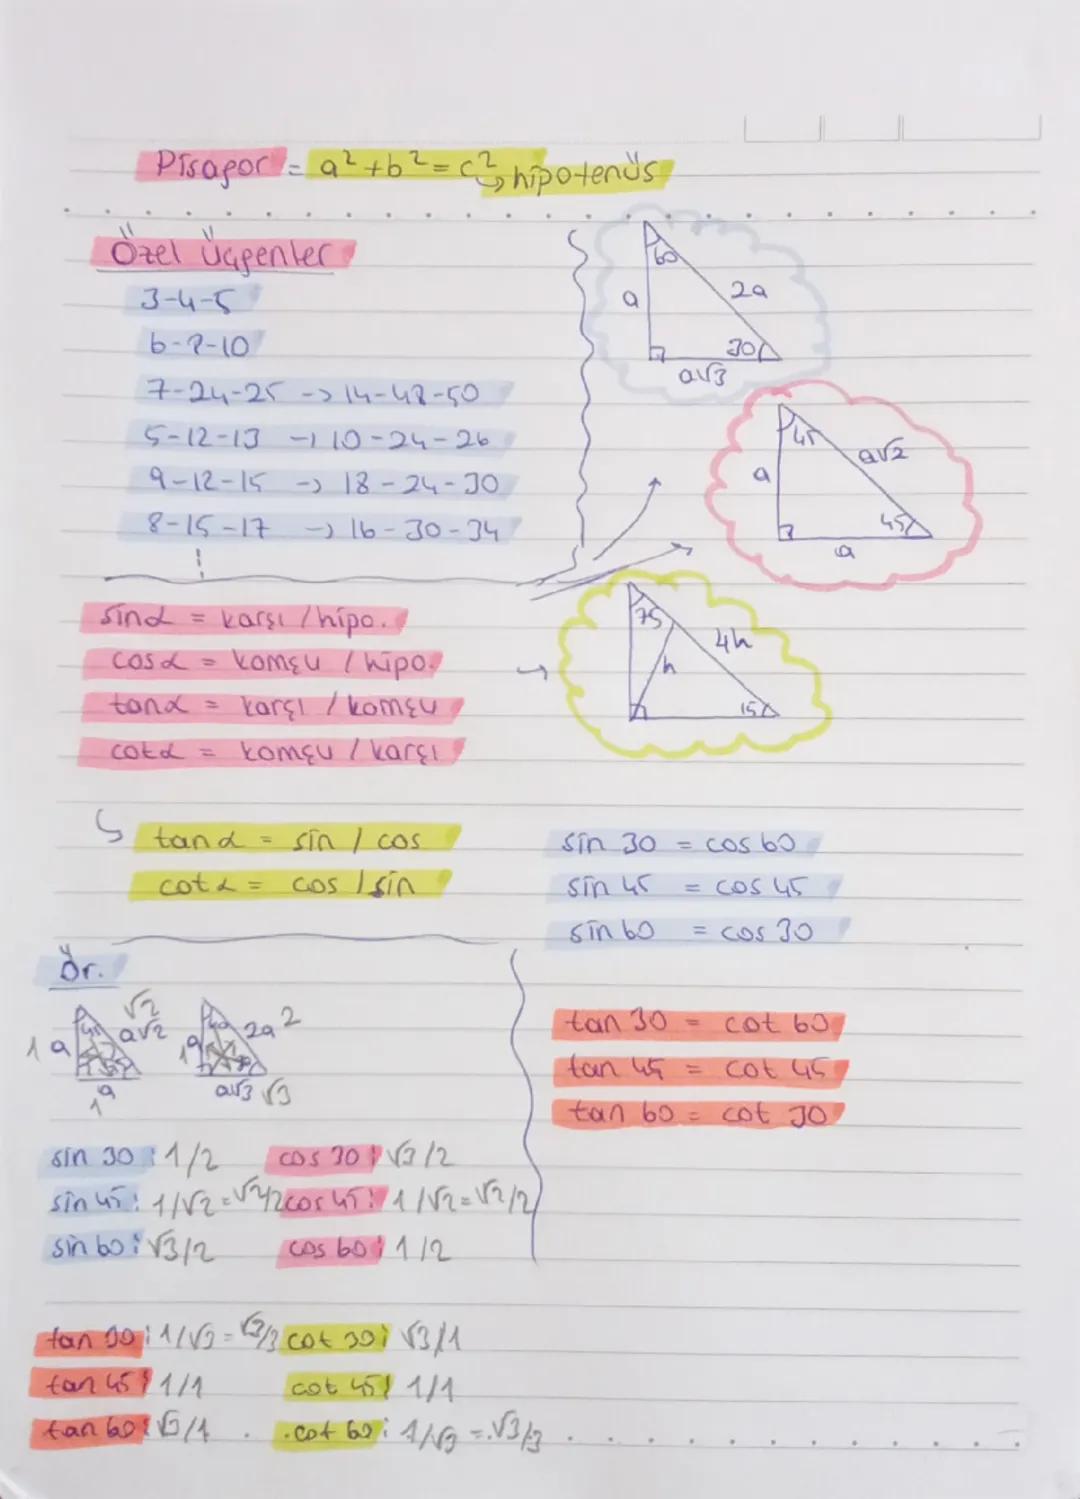 Pisagor = a²+b²=c² → hipotenüs
Özel Üçgenler
3-4-5
6-8-10
7-24-25 -> 14-48-50
5-12-13 -> 10-24-26
9-12-15 -> 18-24-30
8-15-17 -> 16-30-34
60
a
2a
30
a√3
45
a
a√2
45
a
75
4h
h
15
sinα = karşı / hipo.
cosα = komşu / hipo.
tanα = karşı / komşu
cotα = komşu / karşı
tanα = sin / cos
cotα = cos / sin
sin 30 = cos 60
sin 45 = cos 45
sin 60 = cos 30
tan 30 = cot 60
tan 45 = cot 45
tan 60 = cot 30
Ör.
√2
1 a 45 a√2
a
1
1 a 60 2a 2
a√3 √3
sin 30: 1/2 cos 30: √3/2
sin 45: 1/√2=√2/2 cos 45: 1/√2=√2/2
sin 60: √3/2 cos 60: 1/2
tan 30: 1/√3=√3/3 cot 30: √3/1
tan 45: 1/1 cot 45: 1/1
tan 60: √3/1 cot 60: 1/√3=√3/3